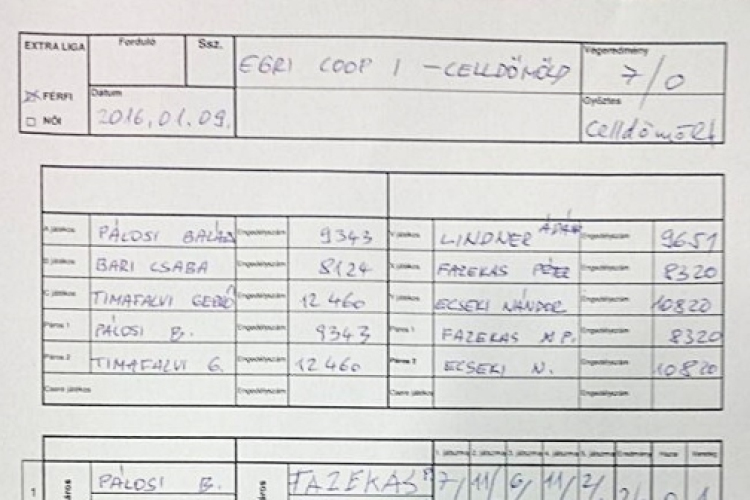 EXTRA LIGA Forduló Ssz. EGRI COOP I - CELLDÖMÖLD Végeredmény 7/0
FÉRFI Dátum 2016.01.09. Győztes Celldömölk
NŐI
A játékos PÁLOSI BALÁZS Engedélyszám 9343 LINDNER ÁDÁM Engedélyszám 9651
B játékos BARI CSABA Engedélyszám 8124 X játékos FAZEKAS PÉTER Engedélyszám 8320
C játékos TIMAFALVI GERGŐ Engedélyszám 12460 ECSEKI NÁNDOR Engedélyszám 10820
Páros 1 PÁLOSI B. Engedélyszám 9343 Páros 1 FAZEKAS P. Engedélyszám 8320
Páros 2 TIMAFALVI G. Engedélyszám 12460 Páros 2 ECSEKI N. Engedélyszám 10820
Csere játékos Engedélyszám Csere játékos Engedélyszám
1. játszma 2. játszma 3. játszma 4. játszma 5. játszma Eredmény Hazai Vendég
1 PÁLOSI B. FAZEKAS P. 7/ 11/ 6/ 11/ 2/